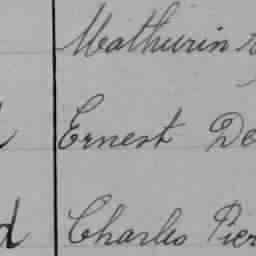 Mathurin
Ernest De
Charles Pier